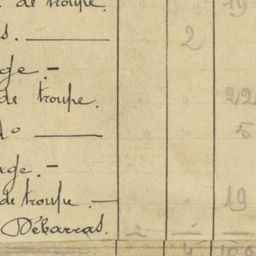 de troupe. 19
s. 2
ge.-
de troupe. 22
do 5
age.-
de troupe. 19
Débarras.
4 100